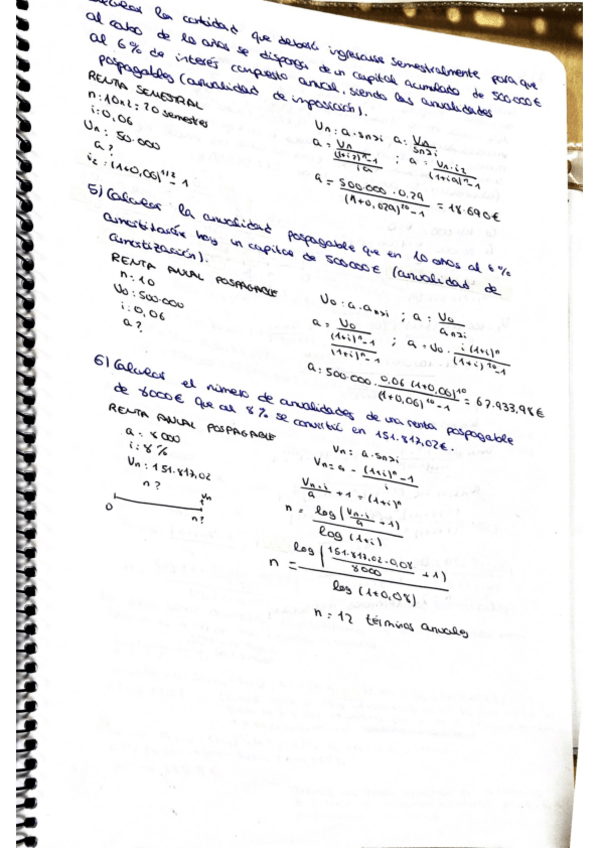 Calcular la cantidad que deberá ingresarse semestralmente para que
al cabo de 10 años se disponga de un capital acumulado de 500.000€
al 6% de interés compuesto anual, siendo las anualidades
pospagables (anualidad de imposición).
RENTA SEMESTRAL
n: 10x2 = 20 semestres
i: 0,06
Vn: 50.000
a?
i2: (1+0,06)^1/2 - 1
Vn: a · Sn⌝i a: Vn / Sn⌝i
a = Vn / ((1+i2)^n - 1 / i2) ; a = Vn · i2 / (1+i2)^n - 1
a = 500.000 · 0,029 / (1+0,029)^20 - 1 = 18.690€
5) Calcular la anualidad pospagable que en 10 años al 6%
amortizarán hoy un capital de 500.000€ (anualidad de
amortización).
RENTA ANUAL POSPAGABLE
n: 10
Vo: 500.000
i: 0,06
a?
Vo: a · an⌝i ; a: Vo / an⌝i
a = Vo / ((1+i)^n - 1 / (1+i)^n · i) ; a = Vo · i(1+i)^n / (1+i)^n - 1
a: 500.000 · 0,06 (1+0,06)^10 / (1+0,06)^10 - 1 = 67.933,98€
6) Calcular el número de anualidades de una renta pospagable
de 8000€ que al 8% se convirtió en 151.817,02€.
RENTA ANUAL POSPAGABLE
a: 8000
i: 8%
Vn: 151.817,02
n?
0 Vn n?
Vn: a · Sn⌝i
Vn = a · (1+i)^n - 1 / i
Vn · i / a + 1 = (1+i)^n
n = log (Vn · i / a + 1) / log (1+i)
n = log (151.817,02 · 0,08 / 8000 + 1) / log (1+0,08)
n = 12 términos anuales